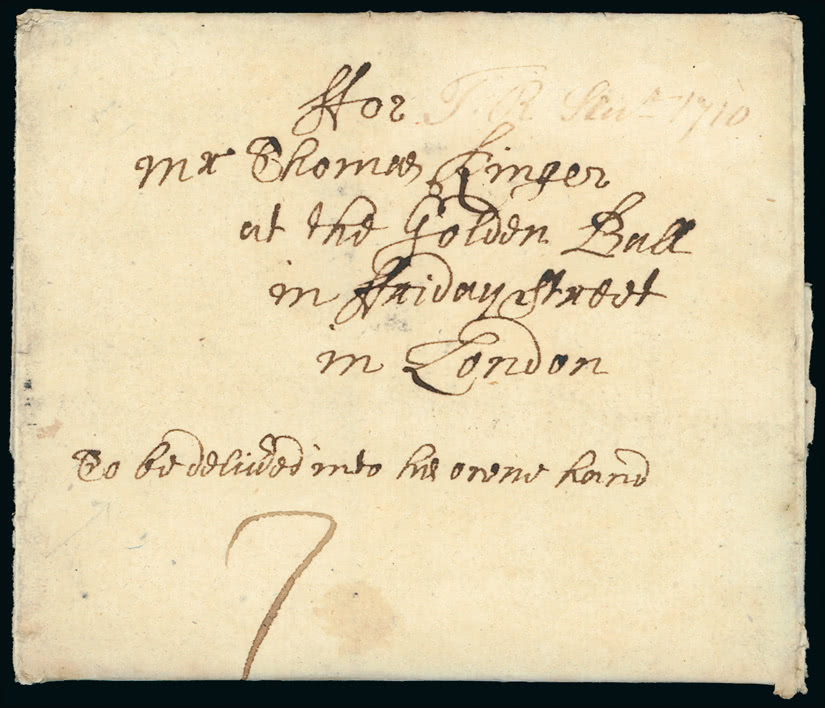 ffor T. R. 1710
mr Thomas Kinger
at the Golden Ball
in ffriday Street
in London
To be deliu'ed into his owne hand
7